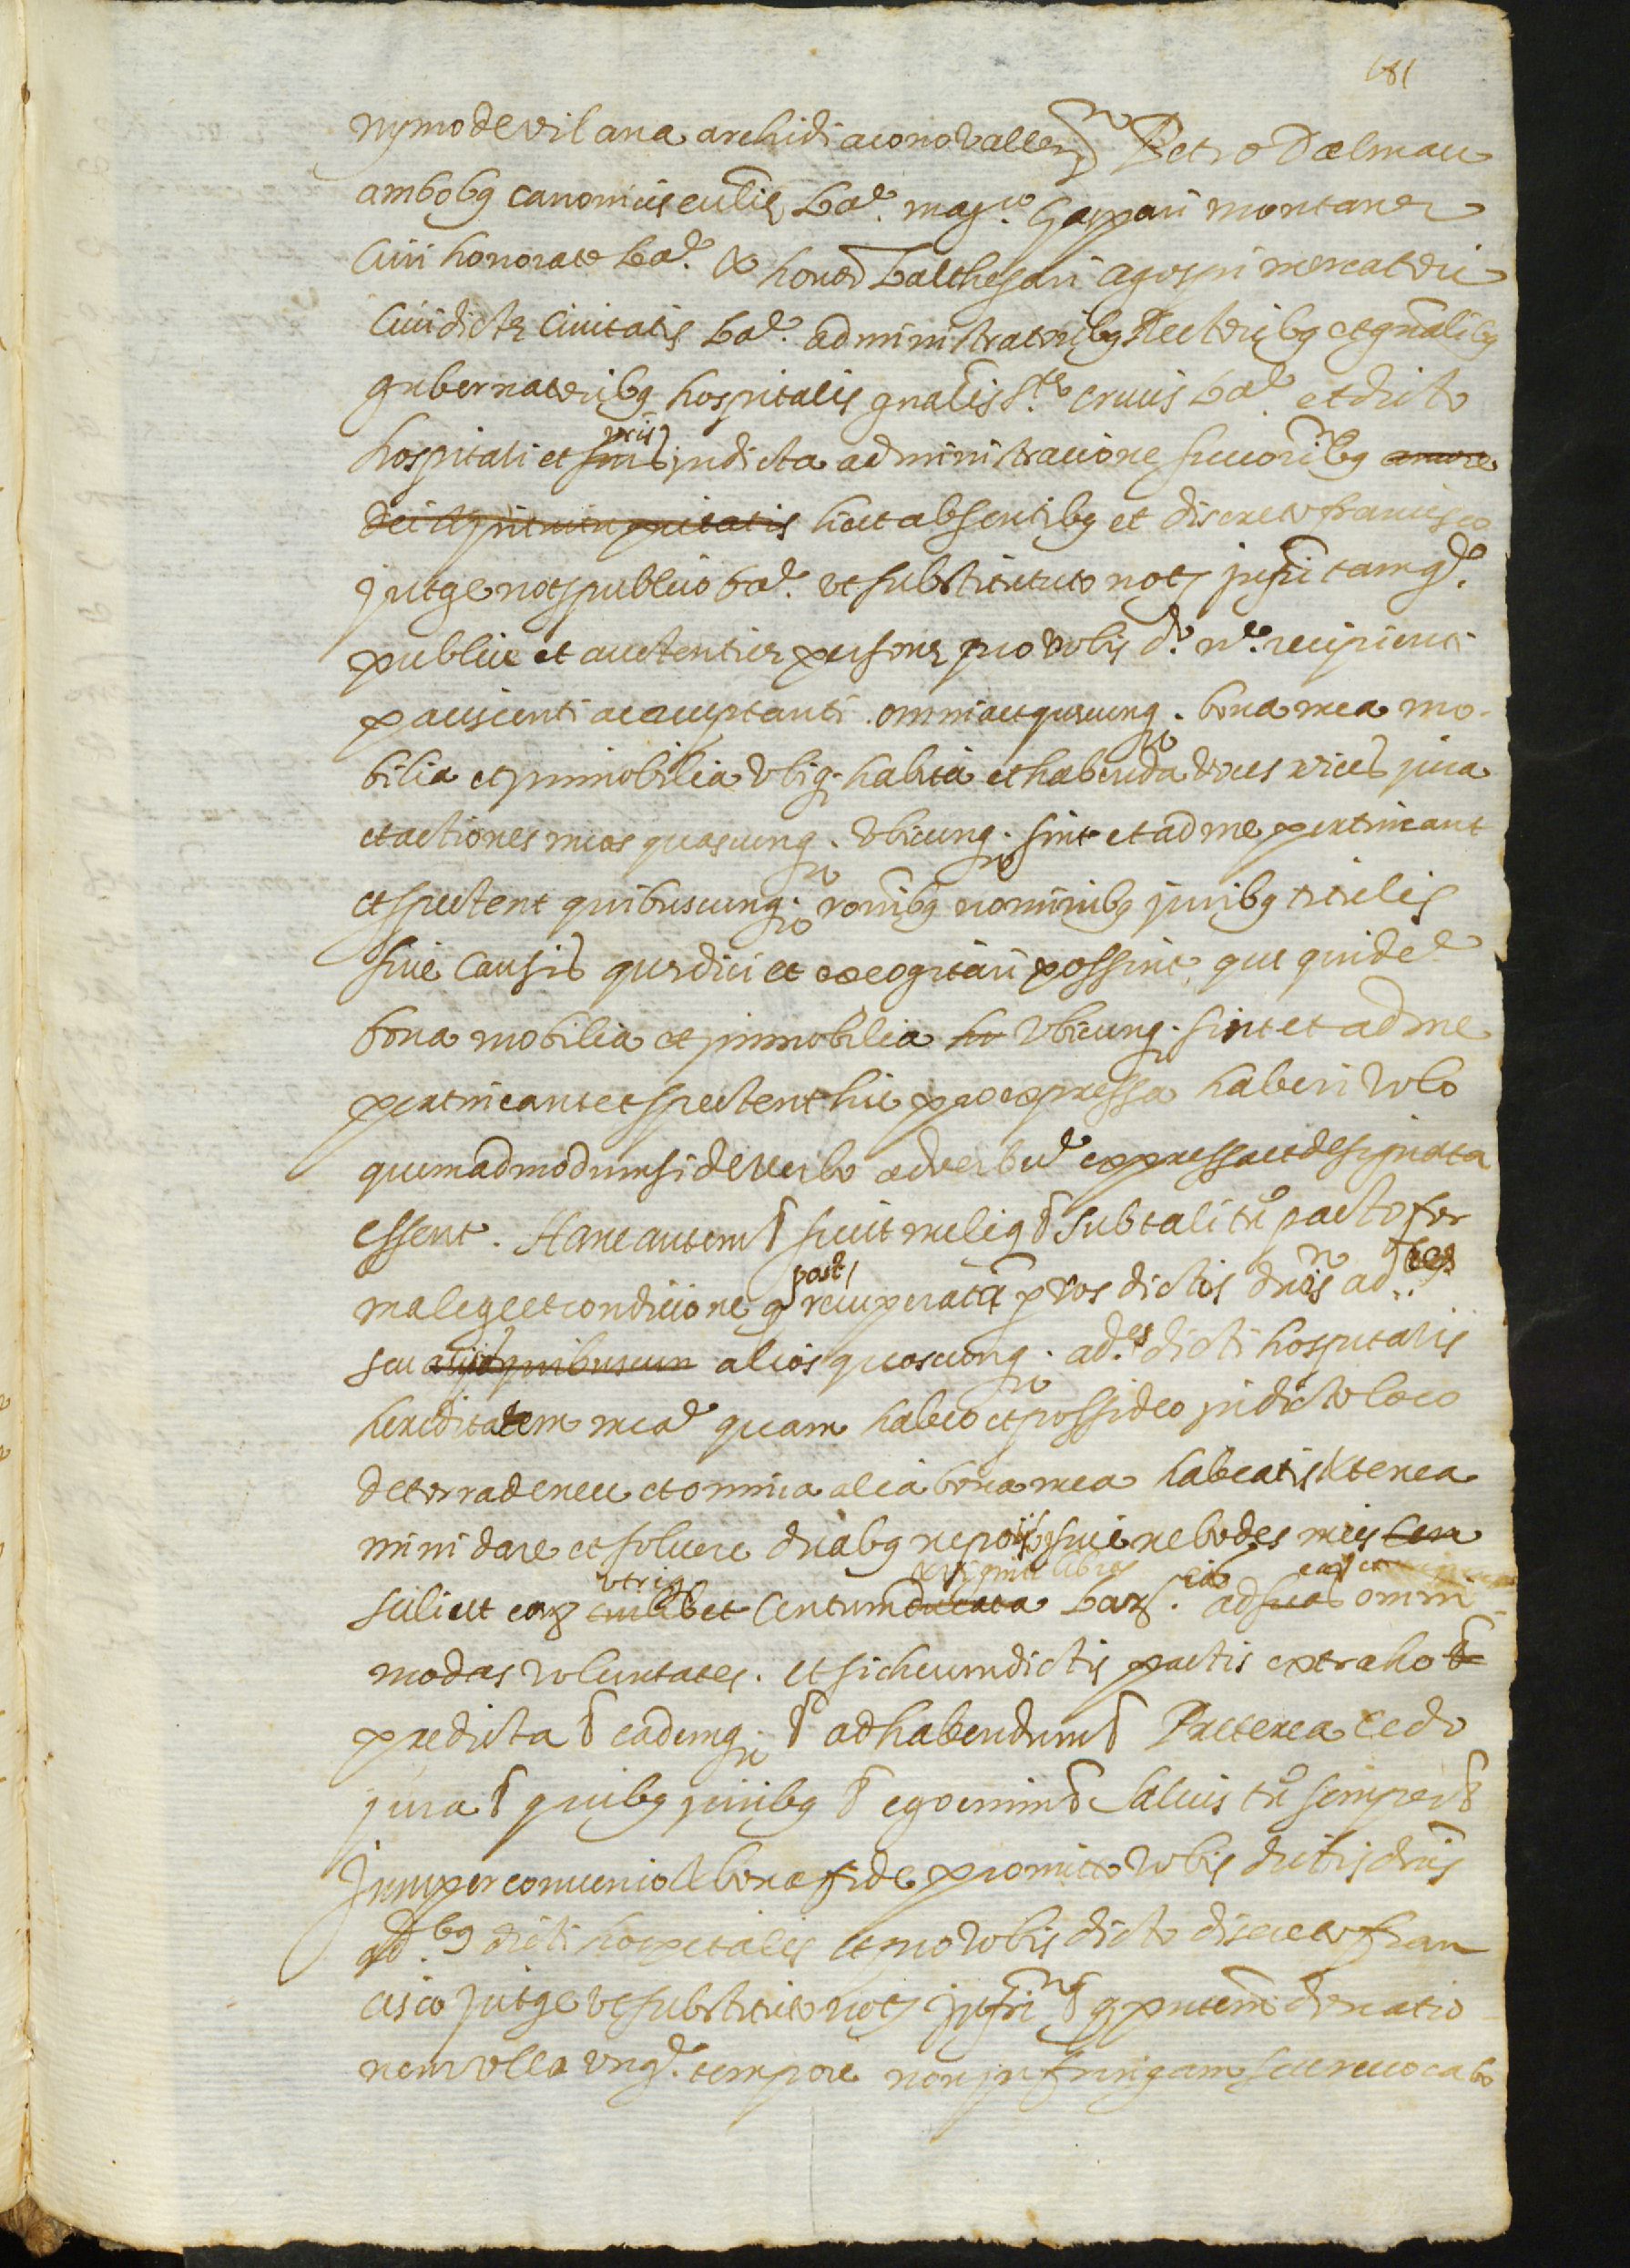 181
nymo de vilana archidiacono vallen̄ Petro Dalmau
ambobq canonicis eccl̄ie bar̄. mag.co Gaspari montaner
civi honorato bar̄. & honor̄. Balthesari agosti mercatori
civi dicte civitatis bar̄. administratoribq rectoribq et gn̄alibq
gubernatoribq hospitalis gn̄alis s.te crucis bar̄. et dicto
hospitali et vris in dicta administracione succoribq amore
dei hic et absentibq et discreto francisco
jutge not. publico bar̄. ut substituto not. infr̄i tamq̄.
publice et auctentice persone pro vobis et recipienti
paciscenti ac acceptanti. omnia et quecunq. bona mea mo-
bilia et jmmobilia ubiq. habita et habenda voces vices jura
et actiones meas quascunq. ubicunq. sint et ad me pertineant
et spectent quibuscunq. ronibq nominibq juribq titulis
sive causis que dici et excogitari possint que quidē
bona mobilia et jmmobilia ubicunq. sint et ad me
pertineant et spectent hic pro expressa haberi volo
quemadmodum si de verbo ad verbū expressa et designata
essent. Hanc autem sicut melius sub tali tn̄ pacto for
ma lege et condicione q post recuperatā p vos dictos dn̄os ad.res
seu alios quoscunq. ad.es dicti hospitalis
hereditatem meā quam habeo et possideo in dicto loco
de torradeneu et omnia alia bona mea habeatis et tenea
mini dare et solvere duabq nepotibq sive nebodes meis
scilicet earz utriq centum ducata bar̄. ad suas eas omni
modas voluntates. et sic cum dictis pactis extraho
predicta eademq. ad habendum Preterea cedo
jura quibq juribq ego enim salvis tn̄ semper
Insuper convenio & bona fide promitto vobis dictis dn̄is
ad.bq dicti hospitalis et pro vobis dicto discreto fran
cisco jutge ut substituto not. infr̄i q pn̄tem donatio
nem ullo unq̄. tempore non infringam seu revocabo